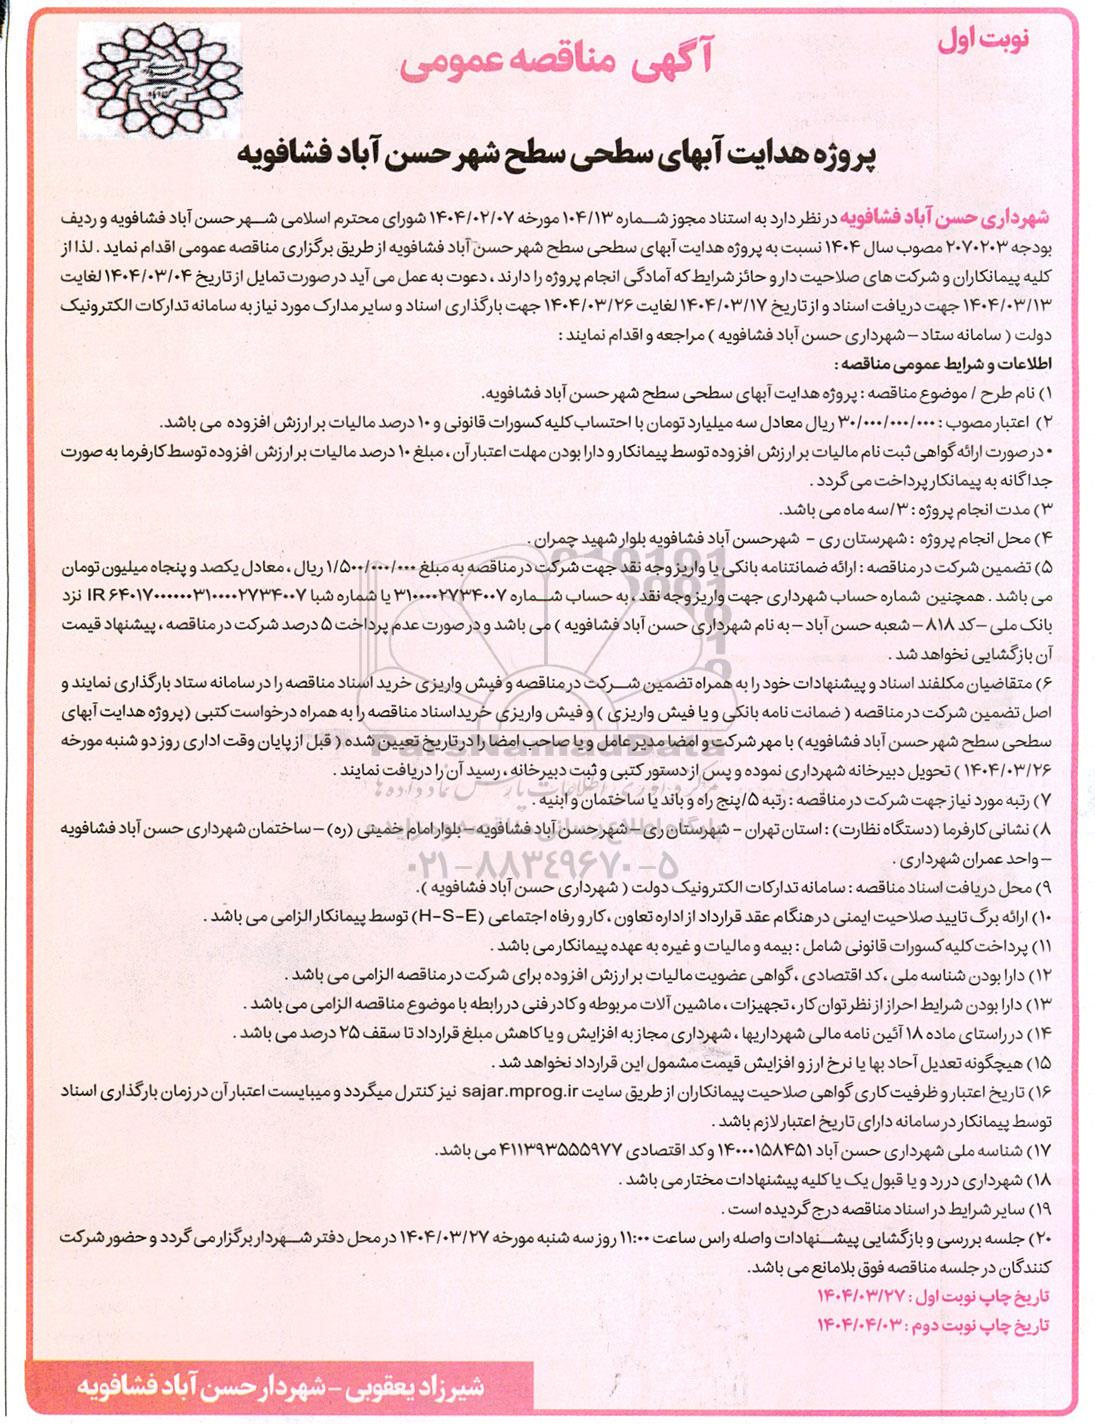 نوبت اول
آگهی مناقصه عمومی
پروژه هدایت آبهای سطحی سطح شهر حسن آباد فشافویه
شهرداری حسن آباد فشافویه در نظر دارد به استناد مجوز شماره ۱۰۴/۱۳ مورخه ۱۴۰۴/۰۲/۰۷ شورای محترم اسلامی شهر حسن آباد فشافویه و ردیف
بودجه ۲۰۷۰۲۰۳ مصوب سال ۱۴۰۴ نسبت به پروژه هدایت آبهای سطحی سطح شهر حسن آباد فشافویه از طریق برگزاری مناقصه عمومی اقدام نماید . لذا از
کلیه پیمانکاران و شرکت های صلاحیت دار و حائز شرایط که آمادگی انجام پروژه را دارند ، دعوت به عمل می آید در صورت تمایل از تاریخ ۱۴۰۴/۰۳/۰۴ لغایت
۱۴۰۴/۰۳/۱۳ جهت دریافت اسناد و از تاریخ ۱۴۰۴/۰۳/۱۷ لغایت ۱۴۰۴/۰۳/۲۶ جهت بارگذاری اسناد و سایر مدارک مورد نیاز به سامانه تدارکات الکترونیک
دولت ( سامانه ستاد – شهرداری حسن آباد فشافویه ) مراجعه و اقدام نمایند :
اطلاعات و شرایط عمومی مناقصه :
۱) نام طرح / موضوع مناقصه : پروژه هدایت آبهای سطحی سطح شهر حسن آباد فشافویه.
۲) اعتبار مصوب : ۳۰/۰۰۰/۰۰۰/۰۰۰ ریال معادل سه میلیارد تومان با احتساب کلیه کسورات قانونی و ۱۰ درصد مالیات بر ارزش افزوده می باشد.
• در صورت ارائه گواهی ثبت نام مالیات بر ارزش افزوده توسط پیمانکار و دارا بودن مهلت اعتبار آن ، مبلغ ۱۰ درصد مالیات بر ارزش افزوده توسط کارفرما به صورت
جداگانه به پیمانکار پرداخت می گردد .
۳) مدت انجام پروژه : ۳/سه ماه می باشد.
۴) محل انجام پروژه : شهرستان ری – شهرحسن آباد فشافویه بلوار شهید چمران .
۵) تضمین شرکت در مناقصه : ارائه ضمانتنامه بانکی یا واریز وجه نقد جهت شرکت در مناقصه به مبلغ ۱/۵۰۰/۰۰۰/۰۰۰ ریال ، معادل یکصد و پنجاه میلیون تومان
می باشد . همچنین شماره حساب شهرداری جهت واریز وجه نقد ، به حساب شماره ۳۱۰۰۰۰۲۷۳۴۰۰۷ یا شماره شبا IR ۶۴۰۱۷۰۰۰۰۰۰۳۱۰۰۰۰۲۷۳۴۰۰۷ نزد
بانک ملی – کد ۸۱۸ – شعبه حسن آباد – به نام شهرداری حسن آباد فشافویه ) می باشد و در صورت عدم پرداخت ۵ درصد شرکت در مناقصه ، پیشنهاد قیمت
آن بازگشایی نخواهد شد .
۶) متقاضیان مکلفند اسناد و پیشنهادات خود را به همراه تضمین شرکت در مناقصه و فیش واریزی خرید اسناد مناقصه را در سامانه ستاد بارگذاری نمایند و
اصل تضمین شرکت در مناقصه ( ضمانت نامه بانکی و یا فیش واریزی ) و فیش واریزی خرید اسناد مناقصه را به همراه درخواست کتبی (پروژه هدایت آبهای
سطحی سطح شهر حسن آباد فشافویه) با مهر شرکت و امضا مدیر عامل و یا صاحب امضا را در تاریخ تعیین شده ( قبل از پایان وقت اداری روز دو شنبه مورخه
۱۴۰۴/۰۳/۲۶ ) تحویل دبیرخانه شهرداری نموده و پس از دستور کتبی و ثبت دبیرخانه ، رسید آن را دریافت نمایند .
۷) رتبه مورد نیاز جهت شرکت در مناقصه : رتبه ۵/پنج راه و باند یا ساختمان و ابنیه .
۸) نشانی کارفرما (دستگاه نظارت) : استان تهران – شهرستان ری – شهرحسن آباد فشافویه – بلوار امام خمینی (ره) – ساختمان شهرداری حسن آباد فشافویه
– واحد عمران شهرداری .
۰۲۱-۸۸۳۴۹۶۷۰-۵
۹) محل دریافت اسناد مناقصه : سامانه تدارکات الکترونیک دولت ( شهرداری حسن آباد فشافویه ).
۱۰) ارائه برگ تایید صلاحیت ایمنی در هنگام عقد قرارداد از اداره تعاون ، کار و رفاه اجتماعی (H-S-E) توسط پیمانکار الزامی می باشد .
۱۱) پرداخت کلیه کسورات قانونی شامل : بیمه و مالیات و غیره به عهده پیمانکار می باشد .
۱۲) دارا بودن شناسه ملی ، کد اقتصادی ، گواهی عضویت مالیات بر ارزش افزوده برای شرکت در مناقصه الزامی می باشد .
۱۳) دارا بودن شرایط احراز از نظر توان کار ، تجهیزات ، ماشین آلات مربوطه و کادر فنی در رابطه با موضوع مناقصه الزامی می باشد .
۱۴) در راستای ماده ۱۸ آئین نامه مالی شهرداریها ، شهرداری مجاز به افزایش و یا کاهش مبلغ قرارداد تا سقف ۲۵ درصد می باشد .
۱۵) هیچگونه تعدیل آحاد بها یا نرخ ارز و افزایش قیمت مشمول این قرارداد نخواهد شد .
۱۶) تاریخ اعتبار و ظرفیت کاری گواهی صلاحیت پیمانکاران از طریق سایت sajar.mprog.ir نیز کنترل میگردد و میبایست اعتبار آن در زمان بارگذاری اسناد
توسط پیمانکار در سامانه دارای تاریخ اعتبار لازم باشد .
۱۷) شناسه ملی شهرداری حسن آباد ۱۴۰۰۰۱۵۸۴۵۱ و کد اقتصادی ۴۱۱۳۹۳۵۵۵۹۷۷ می باشد.
۱۸) شهرداری در رد و یا قبول یک یا کلیه پیشنهادات مختار می باشد .
۱۹) سایر شرایط در اسناد مناقصه درج گردیده است .
۲۰) جلسه بررسی و بازگشایی پیشنهادات واصله راس ساعت ۱۱:۰۰ روز سه شنبه مورخه ۱۴۰۴/۰۳/۲۷ در محل دفتر شهردار برگزار می گردد و حضور شرکت
کنندگان در جلسه مناقصه فوق بلامانع می باشد.
تاریخ چاپ نوبت اول : ۱۴۰۴/۰۳/۲۷
تاریخ چاپ نوبت دوم : ۱۴۰۴/۰۴/۰۳
شیرزاد یعقوبی – شهردار حسن آباد فشافویه